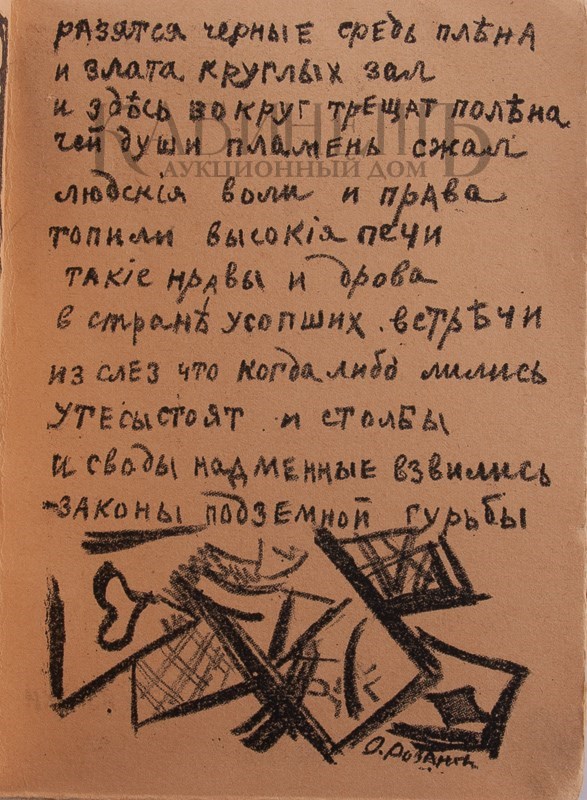 разятся черные средь плѣна
и злата круглых зал
и здѣсь вокруг трещат полѣна
чей души пламень сжал
людскія воли и права
топили высокія печи
такіе нравы и дрова
в странѣ усопших встрѣчи
из слез что когда либо лились
утесы стоят и столбы
и своды надменные взвились
законы подземной гурьбы
КАБИНЕТЪ
АУКЦИОННЫЙ ДОМ
О. Розанъ